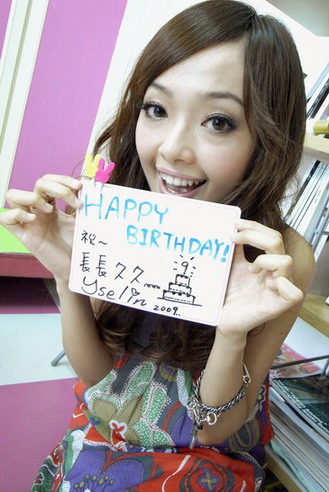 HAPPY
BIRTHDAY!
祝~
長長久久~
9
Yselin
2009.